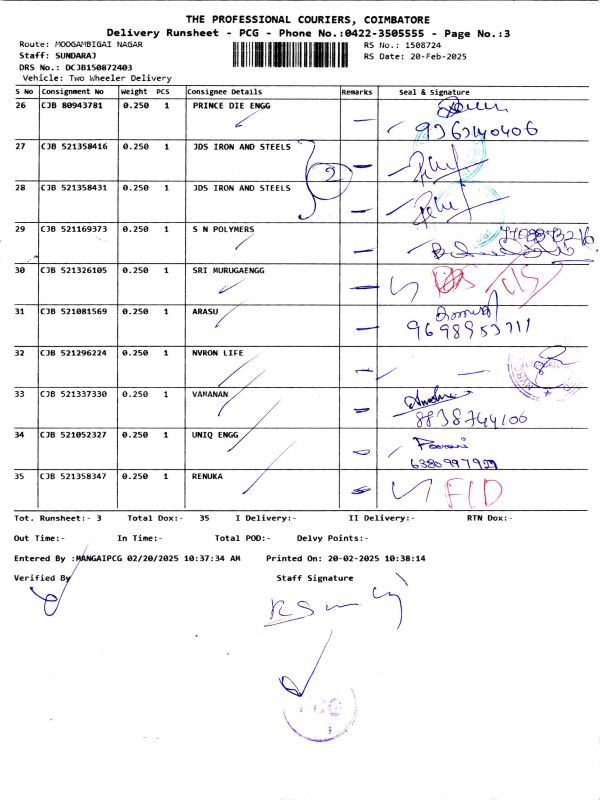 THE PROFESSIONAL COURIERS, COIMBATORE
Delivery Runsheet - PCG - Phone No.:0422-3505555 - Page No.:3
Route: MOOGAMBIGAI NAGAR RS No.: 1508724
Staff: SUNDARAJ RS Date: 20-Feb-2025
DRS No.: DCJB150872403
Vehicle: Two Wheeler Delivery
S No Consignment No Weight PCS Consignee Details Remarks Seal & Signature
26 CJB 80943781 0.250 1 PRINCE DIE ENGG
27 CJB 521358416 0.250 1 JDS IRON AND STEELS
2
28 CJB 521358431 0.250 1 JDS IRON AND STEELS
29 CJB 521169373 0.250 1 S N POLYMERS
30 CJB 521326105 0.250 1 SRI MURUGAENGG
31 CJB 521081569 0.250 1 ARASU
32 CJB 521296224 0.250 1 NVRON LIFE
33 CJB 521337330 0.250 1 VAMANAN
8838744106
34 CJB 521052327 0.250 1 UNIQ ENGG
35 CJB 521358347 0.250 1 RENUKA
Tot. Runsheet:- 3 Total Dox:- 35 I Delivery:- II Delivery:- RTN Dox:-
Out Time:- In Time:- Total POD:- Delvy Points:-
Entered By :MANGAIPCG 02/20/2025 10:37:34 AM Printed On: 20-02-2025 10:38:14
Verified By Staff Signature
PCG